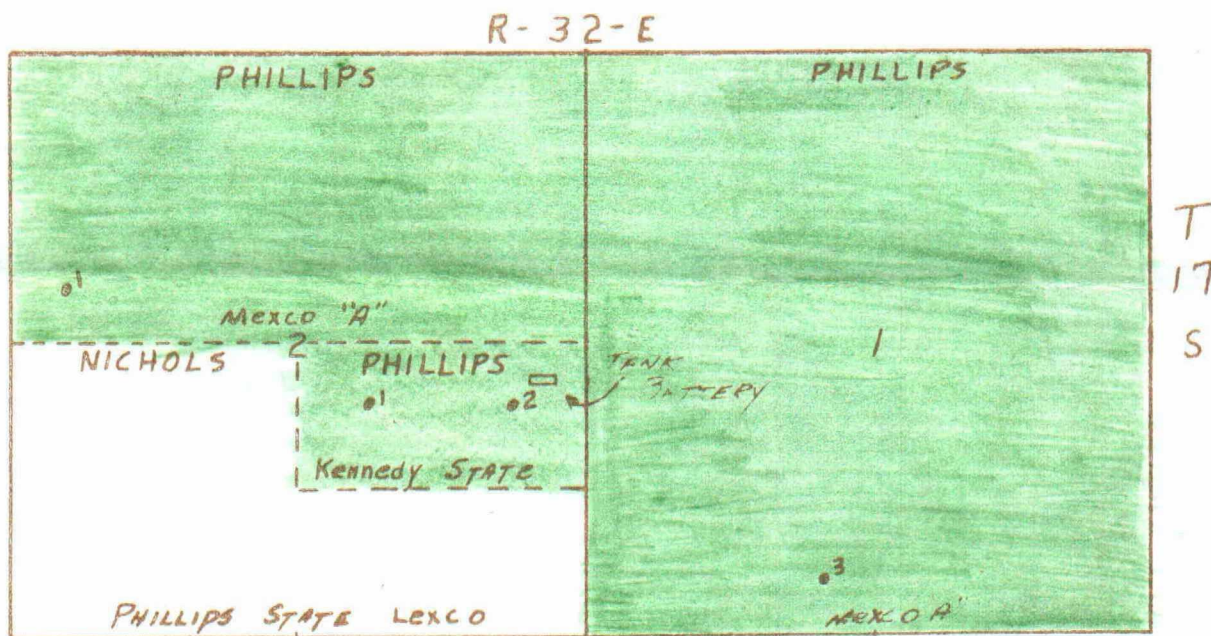 R-32-E
PHILLIPS
PHILLIPS
T
17
S
1
Mexco "A"
2
1
NICHOLS
PHILLIPS
TANK
BATTERY
1
2
Kennedy STATE
3
PHILLIPS STATE LEXCO
MEXCO A"